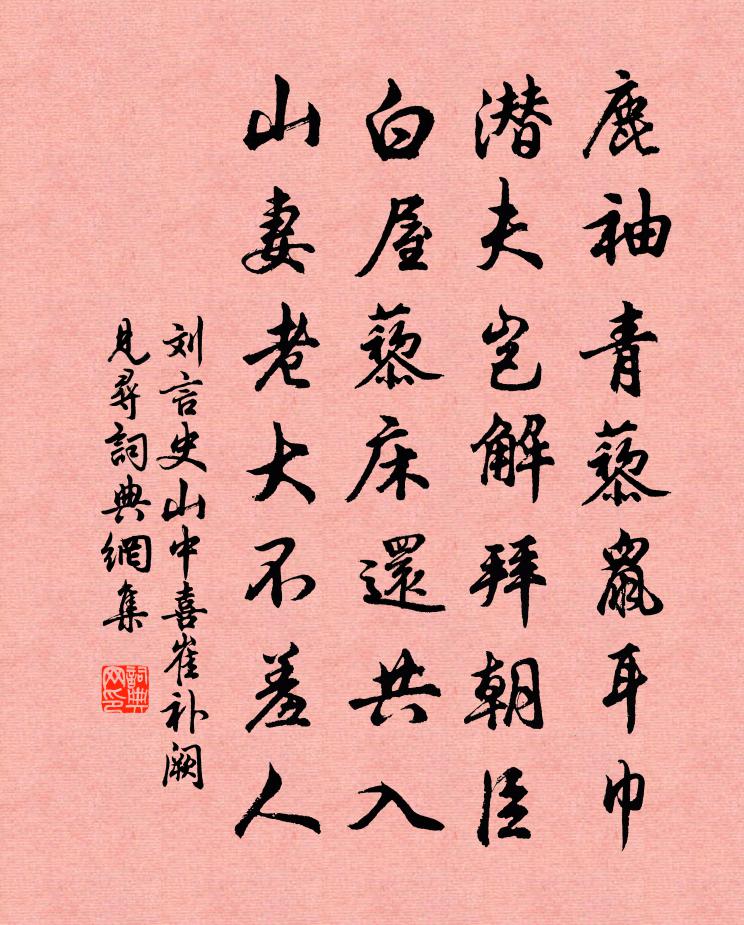 鹿袖青藜鼠耳巾
潜夫岂解拜朝臣
白屋藜床還共入
山妻老大不羞人
刘言史山中喜崔补阙
見尋詞典網集
詞典網印